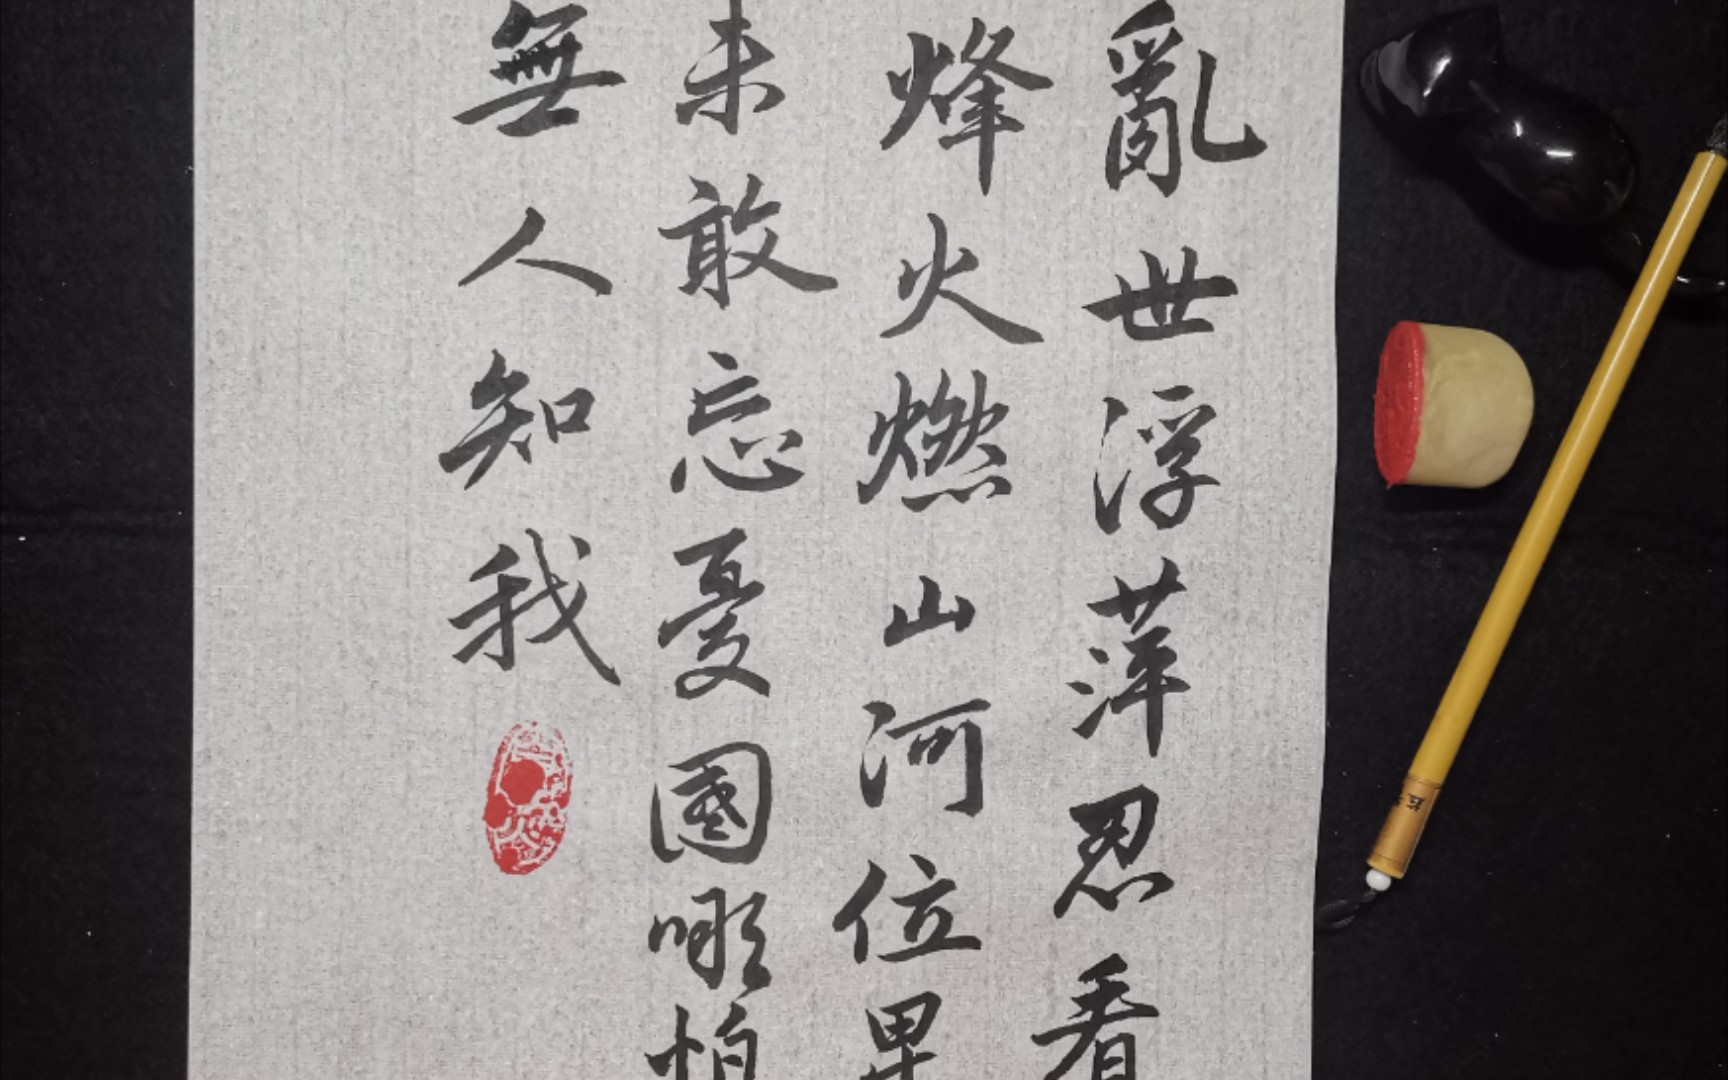 亂世浮萍忍看
烽火燃山河位卑
未敢忘憂國哪怕
無人知我